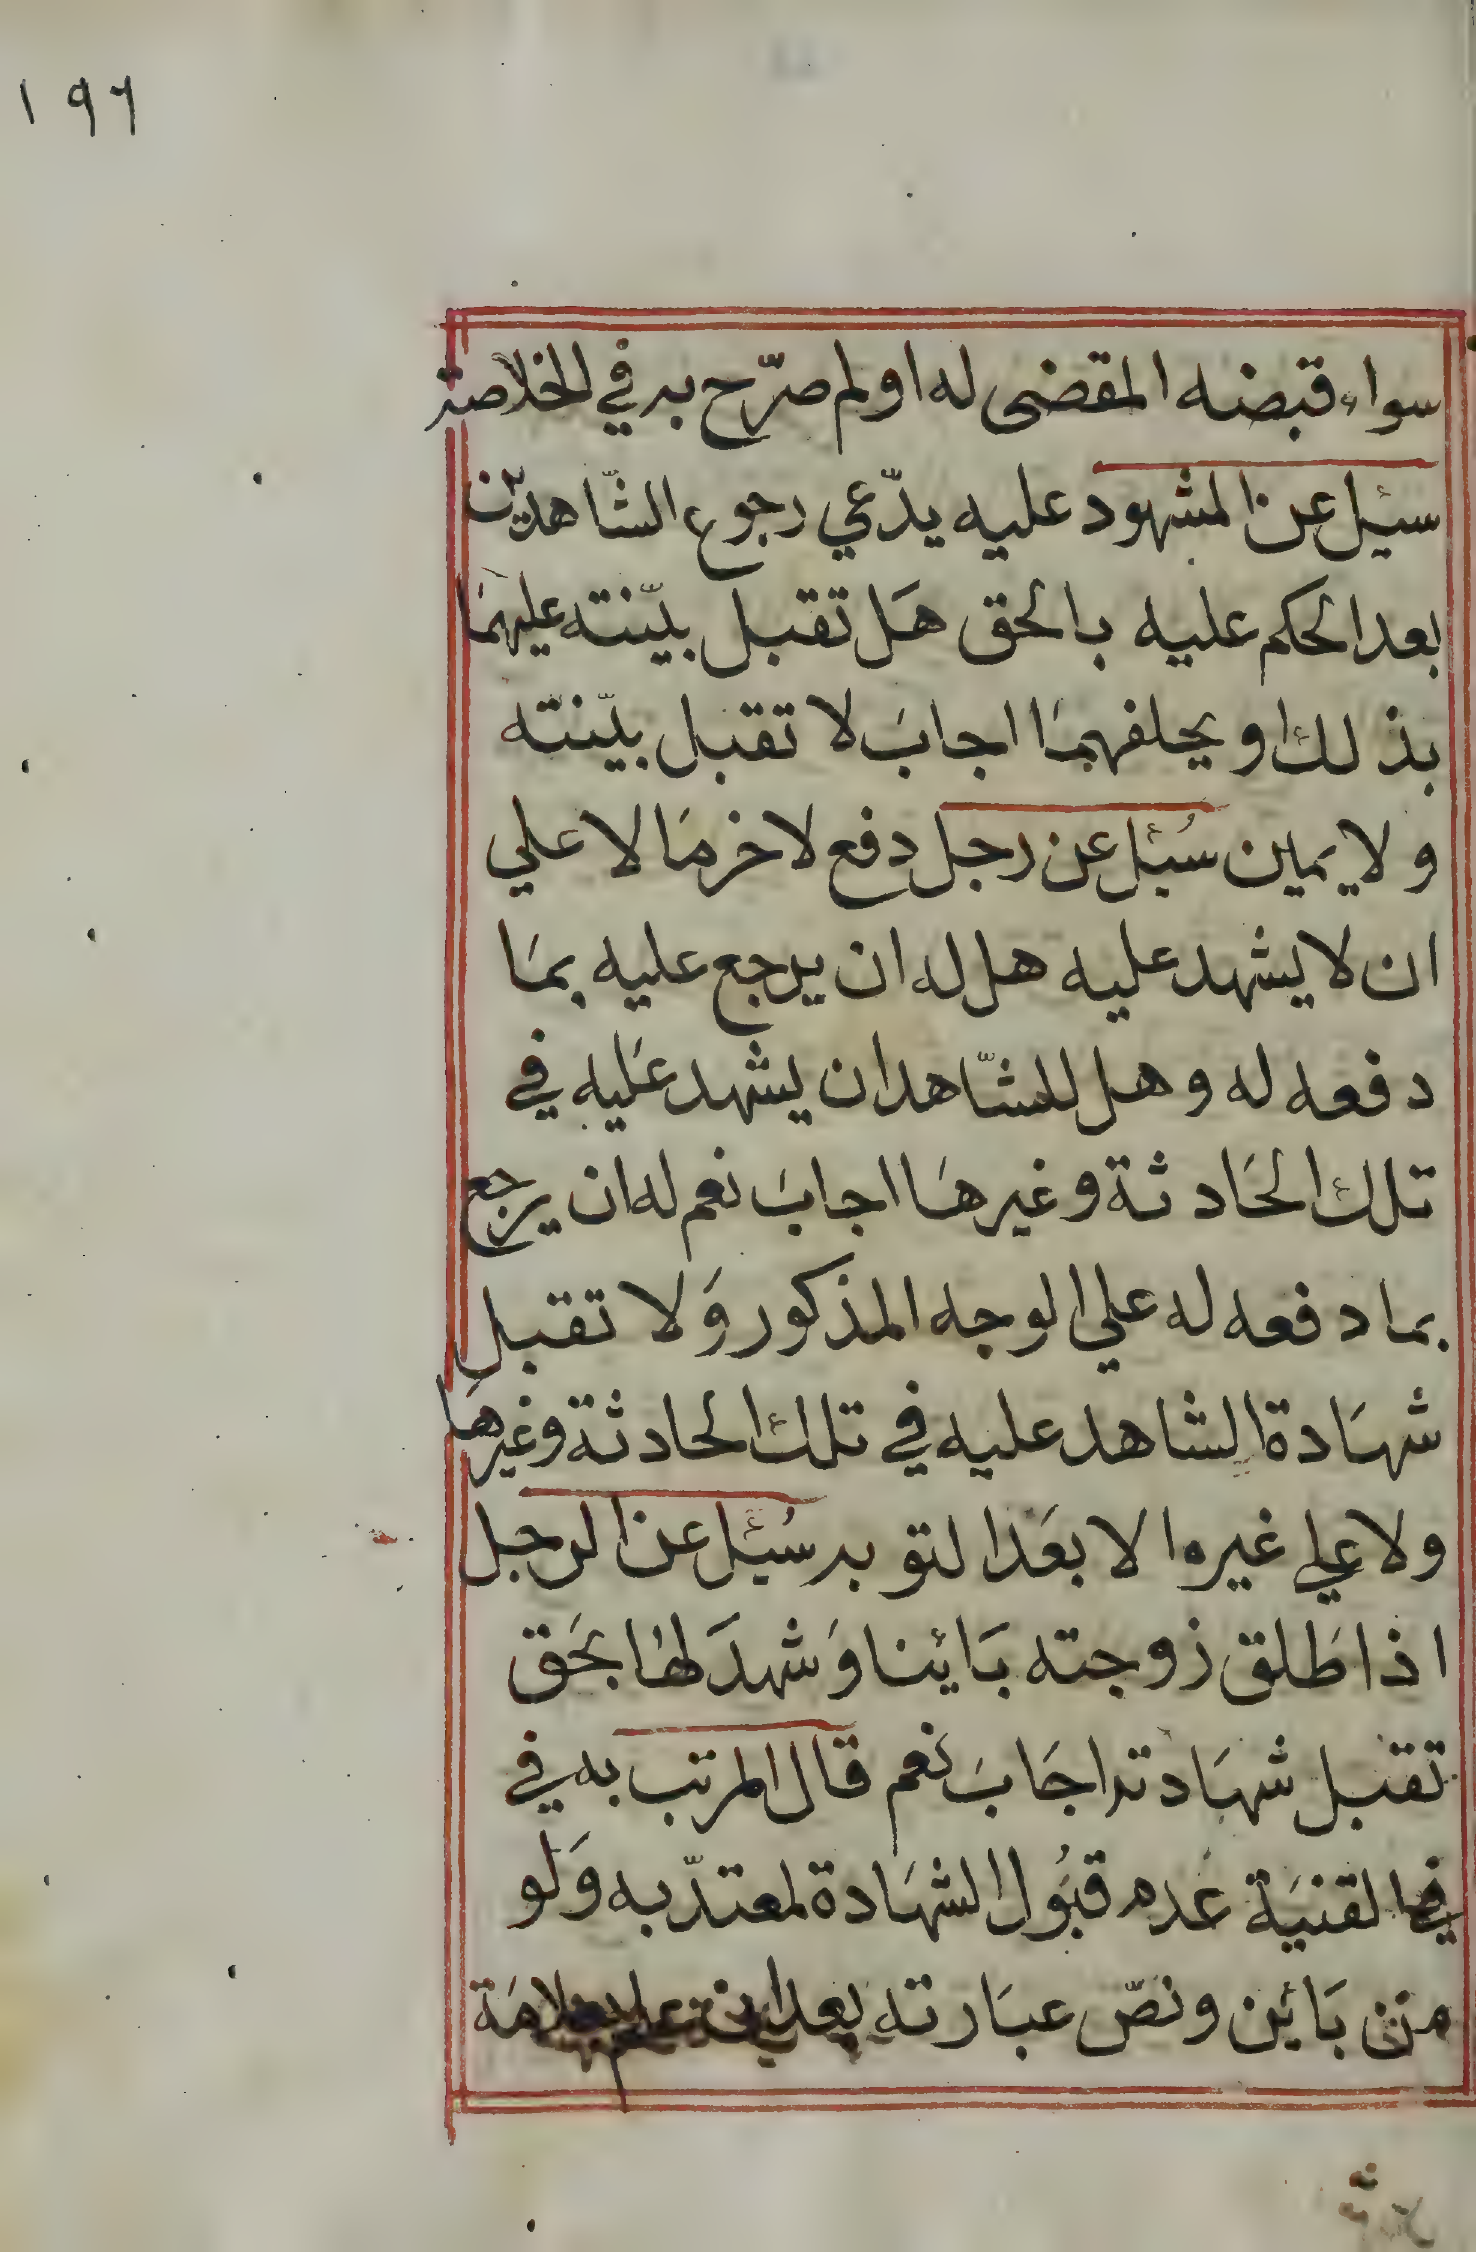 ١٩٦
سواء قبضه المقضى له اولم صرّح به في الخلاصة
سئل عن المشهود عليه يدّعي رجوع الشّاهدين
بعد الحكم عليه بالحق هَل تقبل بيّنته عليهمَا
بذلك او يحلفهمَا اجابَ لا تقبل بيّنته
ولا يمين سُئل عن رجل دفع لاخر مَا لا علي
ان لا يشهد عليه هل له ان يرجع عليه بمَا
دفعه له وهل للشّاهد ان يشهد عَليه في
تلك الحَادثة وغيرهَا اجابَ نعم له ان يرجع
بما دفعه له علي الوجه المذكور وَلا تقبل
شهَادة الشاهد عليه في تلك الحادثة وغيرهَا
ولا علي غيره الا بعَد التوبه سُئل عن الرجل
اذا طَلق زوجته بَائنا وَشهدَ لهَا بحَق
تقبل شهَادته اجَابَ نعم قال المرتب به في
فيما لقنيَة عَدم قبُول الشهَادة لمعتدّ به وَلَو
من بَائن ونصّ عبَارته بعد ان علم بعلامَة